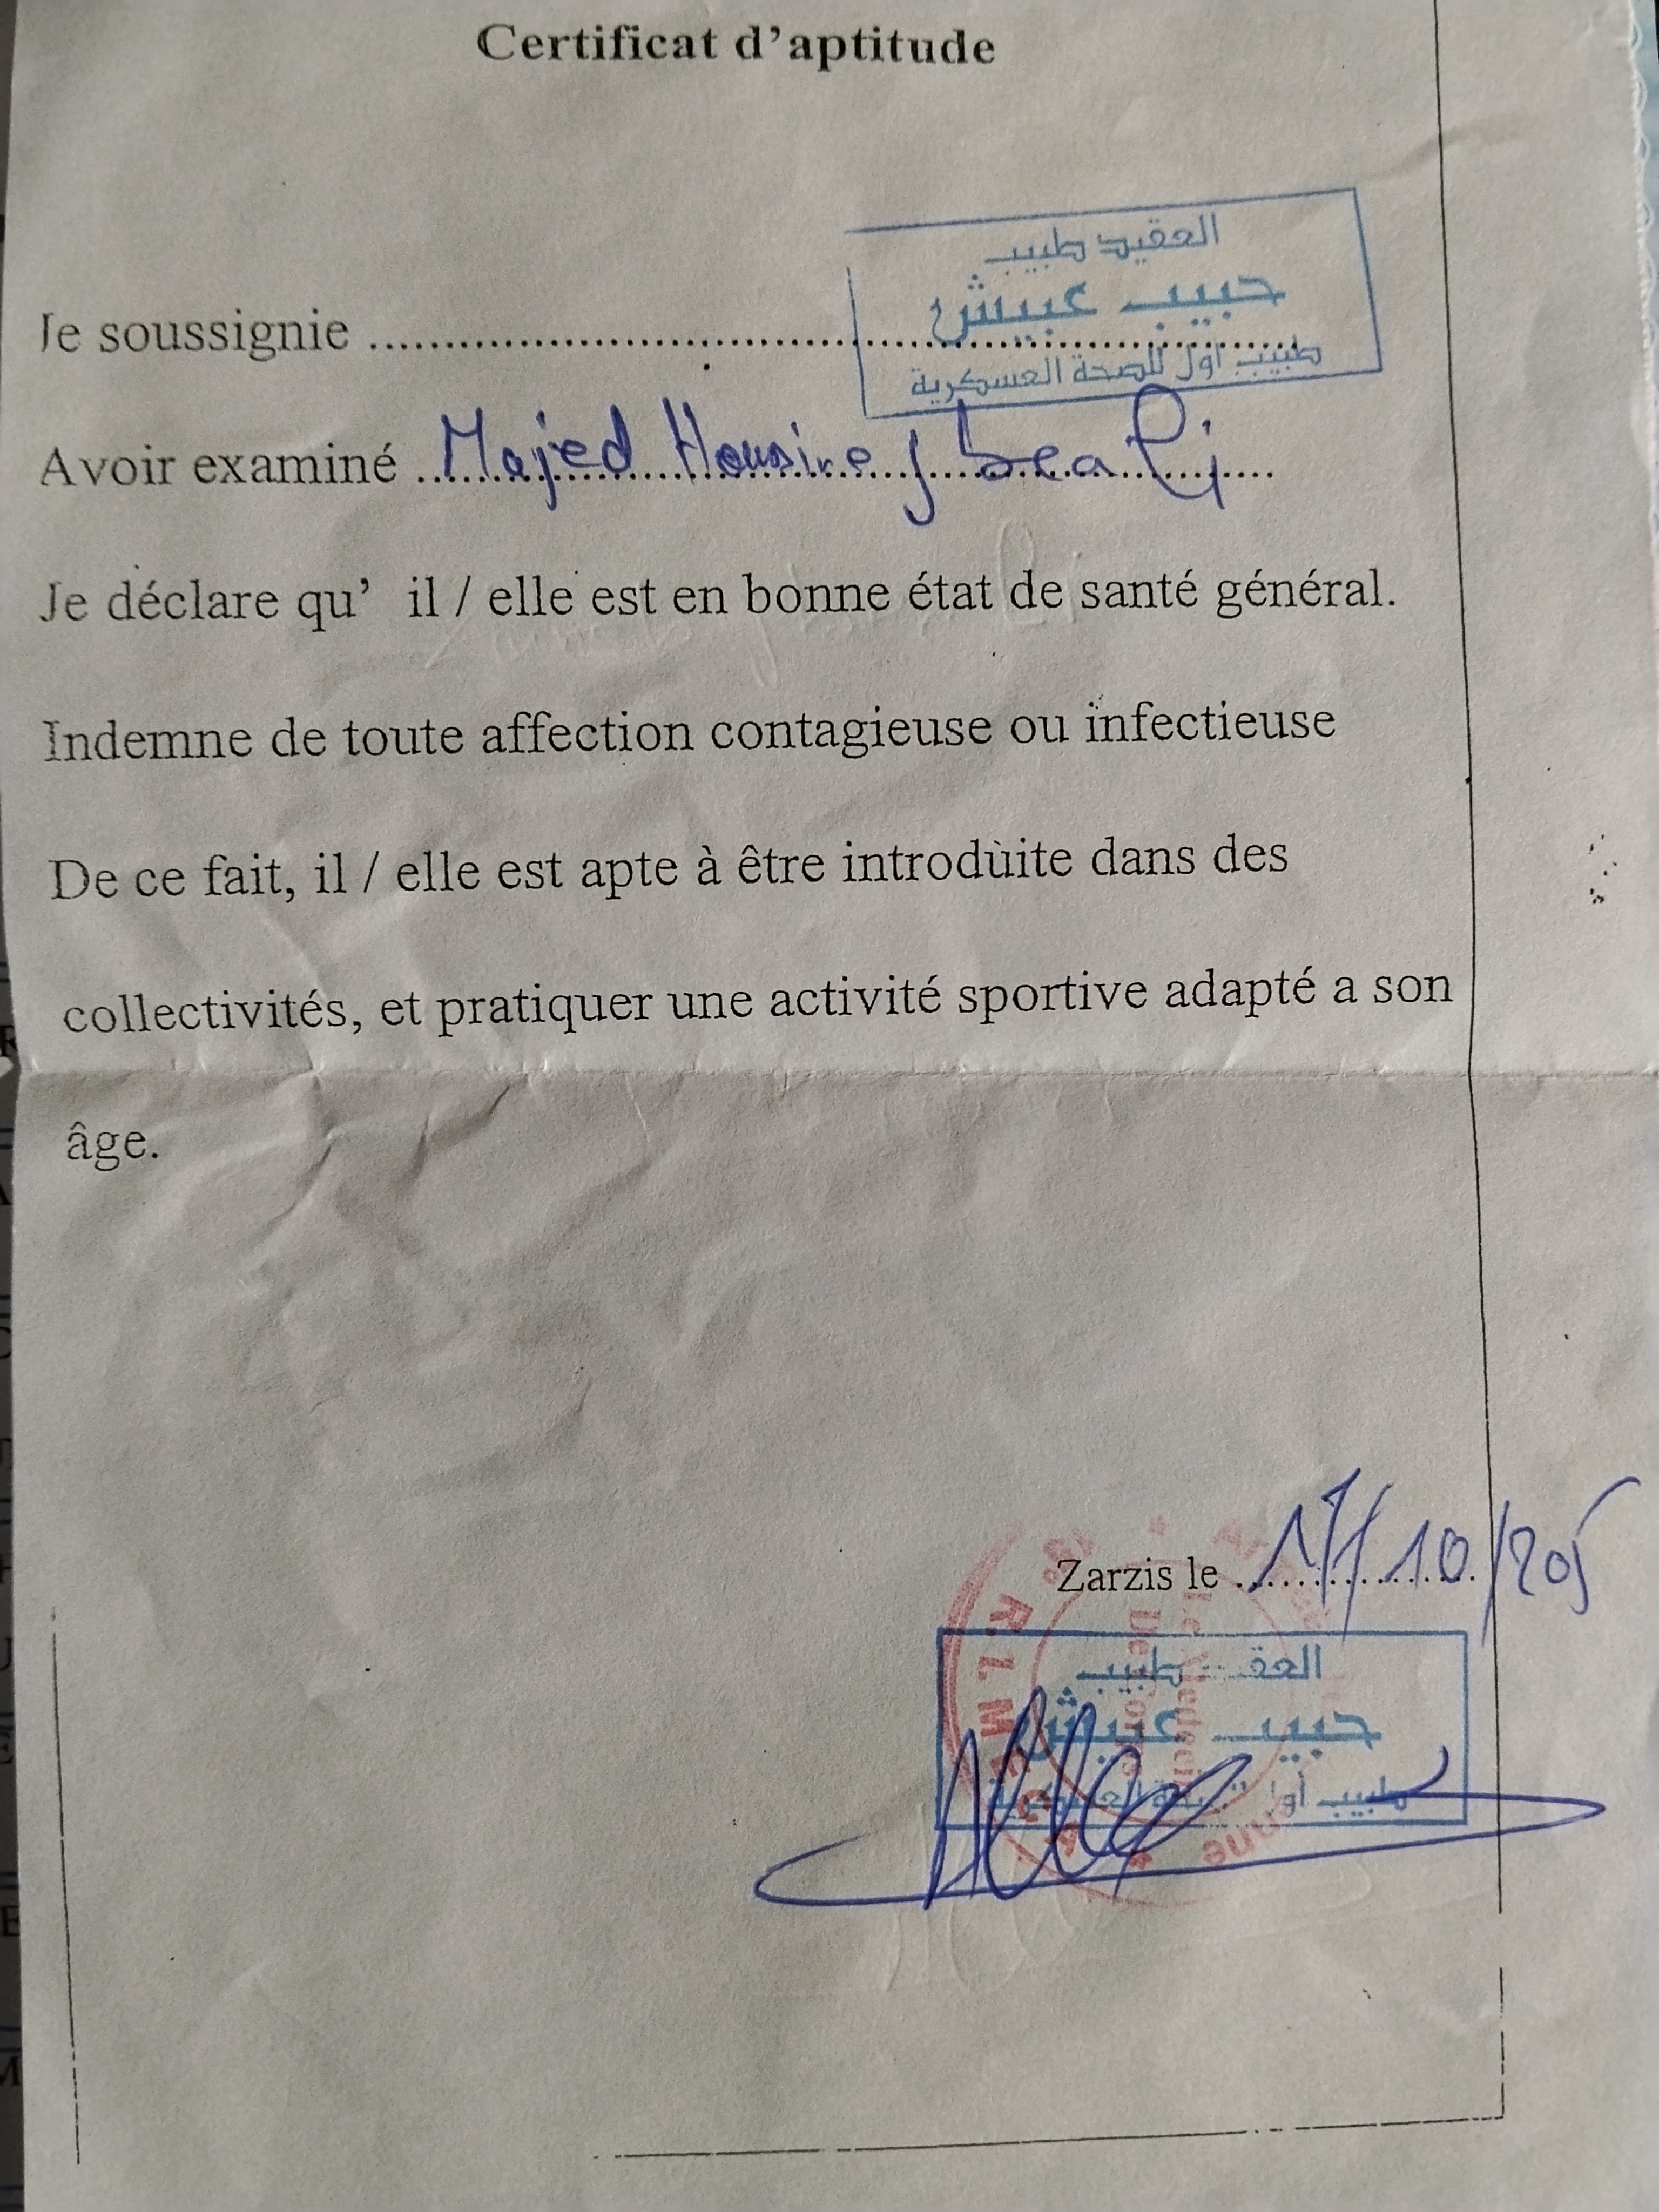 Certificat d'aptitude
العقيد طبيب
حبيب عبيش
Je soussignie ........................................
طبيب أول للصحة العسكرية
Avoir examiné Majed Housine Jbeali
Je déclare qu' il / elle est en bonne état de santé général.
Indemne de toute affection contagieuse ou infectieuse
De ce fait, il / elle est apte à être introduite dans des
collectivités, et pratiquer une activité sportive adapté a son
âge.
Zarzis le 17/10/205
طبيب
حبيب عبيش
طبيب أول
R.I.M